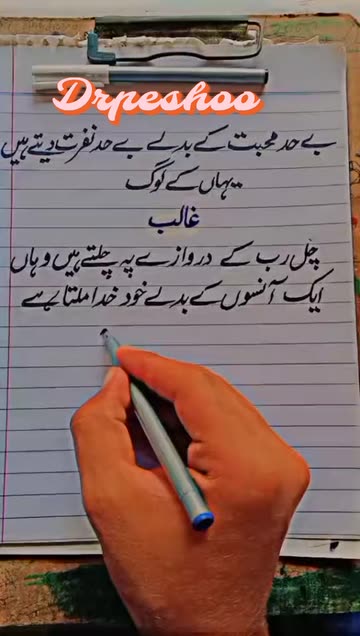 Drpeshoo
بے حد محبت کے بدلے بے حد نفرت دیتے ہیں
یہاں کے لوگ
غالب
چل رب کے دروازے پہ چلتے ہیں وہاں
ایک آنسوں کے بدلے خود خدا ملتا ہے